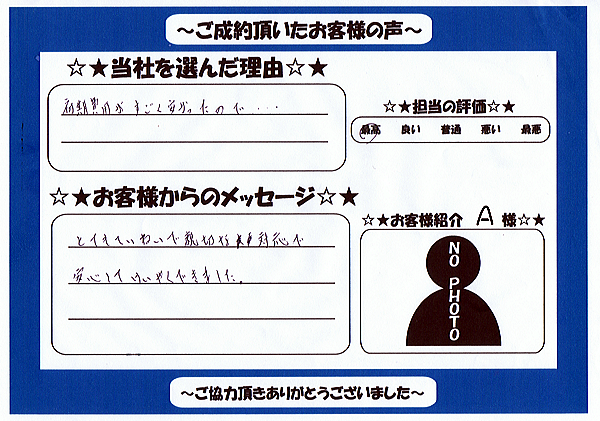 ～ご成約頂いたお客様の声～
☆★当社を選んだ理由☆★
初期費用がすごく安かったので・・・
☆★担当の評価☆★
最高 良い 普通 悪い 最悪
☆★お客様からのメッセージ☆★
とてもていねいで親切な対応で
安心してけいやくできました。
☆★お客様紹介 A 様☆★
NO PHOTO
～ご協力頂きありがとうございました～